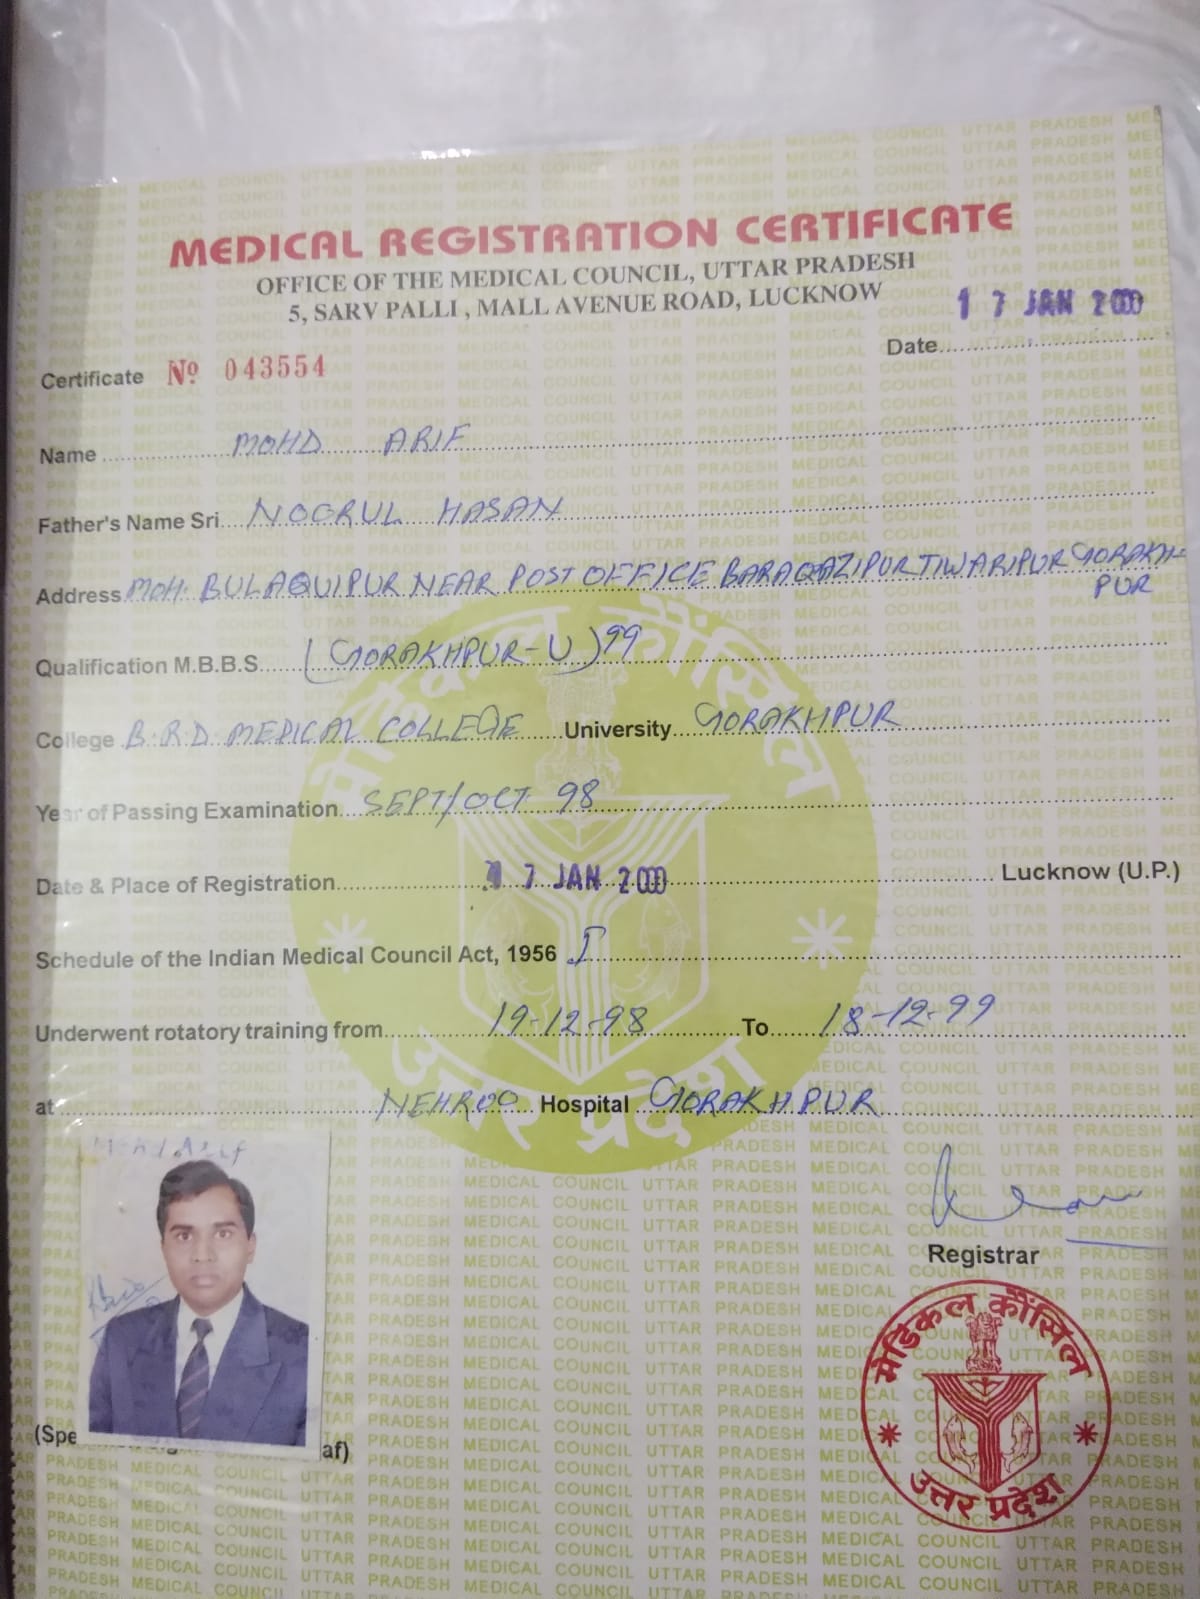 MEDICAL REGISTRATION CERTIFICATE
OFFICE OF THE MEDICAL COUNCIL, UTTAR PRADESH
5, SARV PALLI , MALL AVENUE ROAD, LUCKNOW
17 JAN 2000
Date
Certificate Nº 043554
Name MOHD ARIF
Father's Name Sri NOORUL HASAN
Address MOH. BULAQUIPUR NEAR POST OFFICE BARAQAZIPUR TIWARIPUR GORAKH-
PUR
Qualification M.B.B.S. (GORAKHPUR-U) 99
College B.R.D. MEDICAL COLLEGE University GORAKHPUR
Year of Passing Examination SEPT/OCT 98
Date & Place of Registration 17 JAN 2000 Lucknow (U.P.)
Schedule of the Indian Medical Council Act, 1956 I
Underwent rotatory training from 19-12-98 To 18-12-99
at NEHROO Hospital GORAKHPUR
Registrar
मेडिकल कौंसिल
उत्तर प्रदेश
(Spe af)